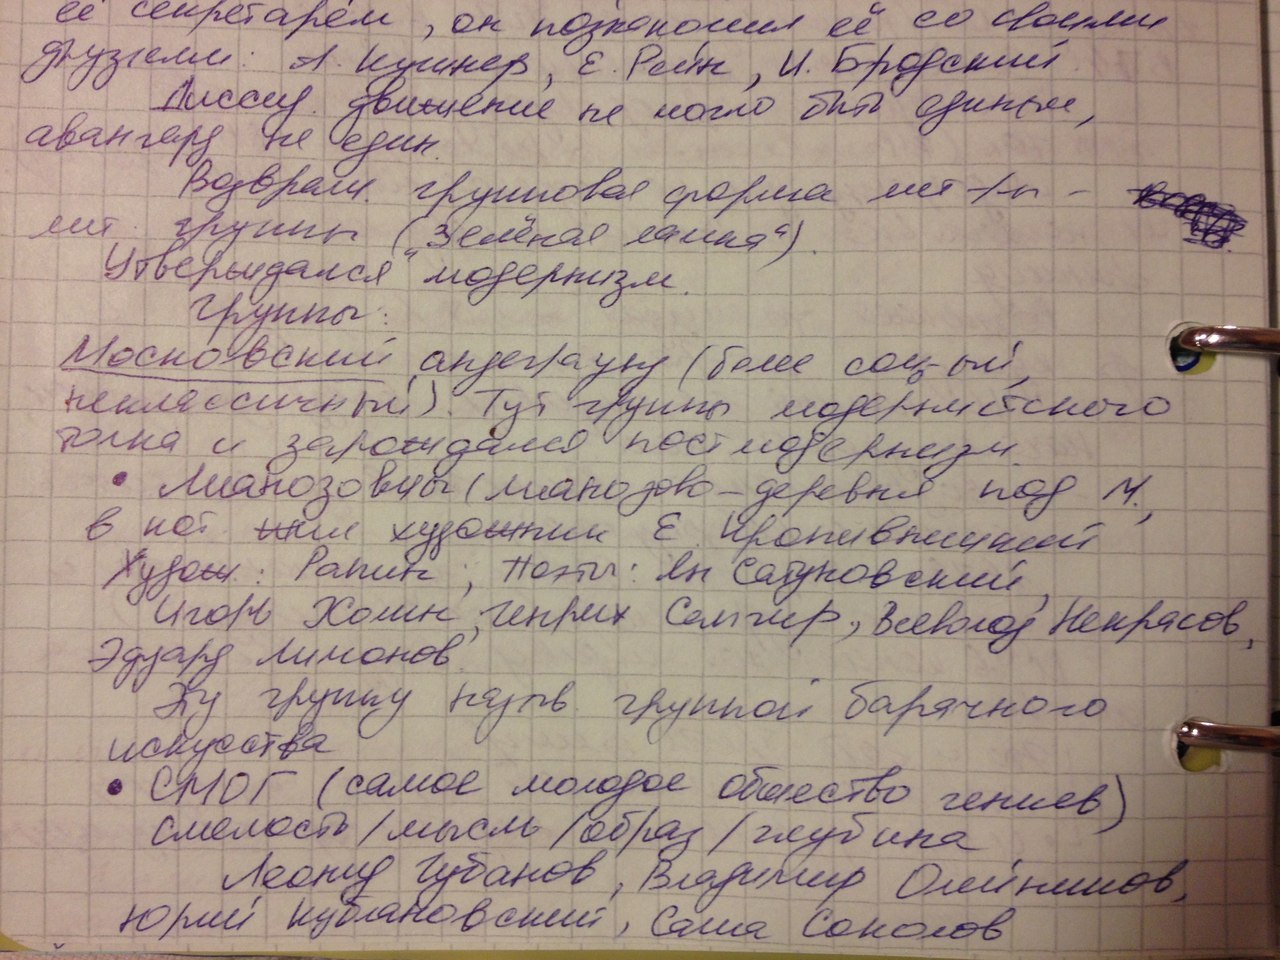 её секретарём, он познакомил её со своими
друзьями: А. Кушнер, Е. Рейн, И. Бродский.
Диссид. движение не могло быть единым,
авангард не един.
Возвращ. групповая форма лит-ры –
лит. группы („Зелёная лампа“).
Утверждался модернизм.
Группы:
Московский андеграунд (более соц-ый,
неклассичный). Тут группы модернистского
толка и зарождался постмодернизм.
• Лианозовцы (Лианозово – деревня под М.,
в кот. жил художник Е. Кропивницкий
Худож: Рапин; Поэты: Ян Сатуновский,
Игорь Холин, Генрих Сапгир, Всеволод Некрасов,
Эдуард Лимонов.
Эту группу назыв. группой барачного
искусства
• СМОГ (самое молодое общество гениев)
смелость/мысль/образ/глубина
Леонид Губанов, Владимир Олейников,
Юрий Кублановский, Саша Соколов